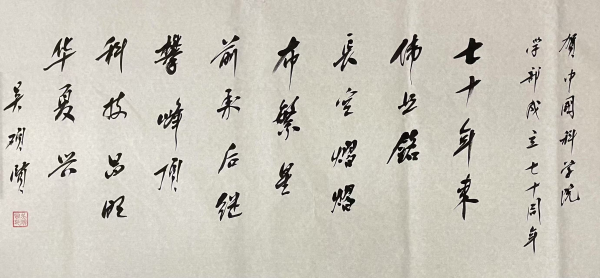 贺中国科学院
学部成立七十周年
七十年来
伟业铭
長空熠熠
布繁星
前承后继
攀峰顶
科技昌旺
华夏兴
吴硕贤